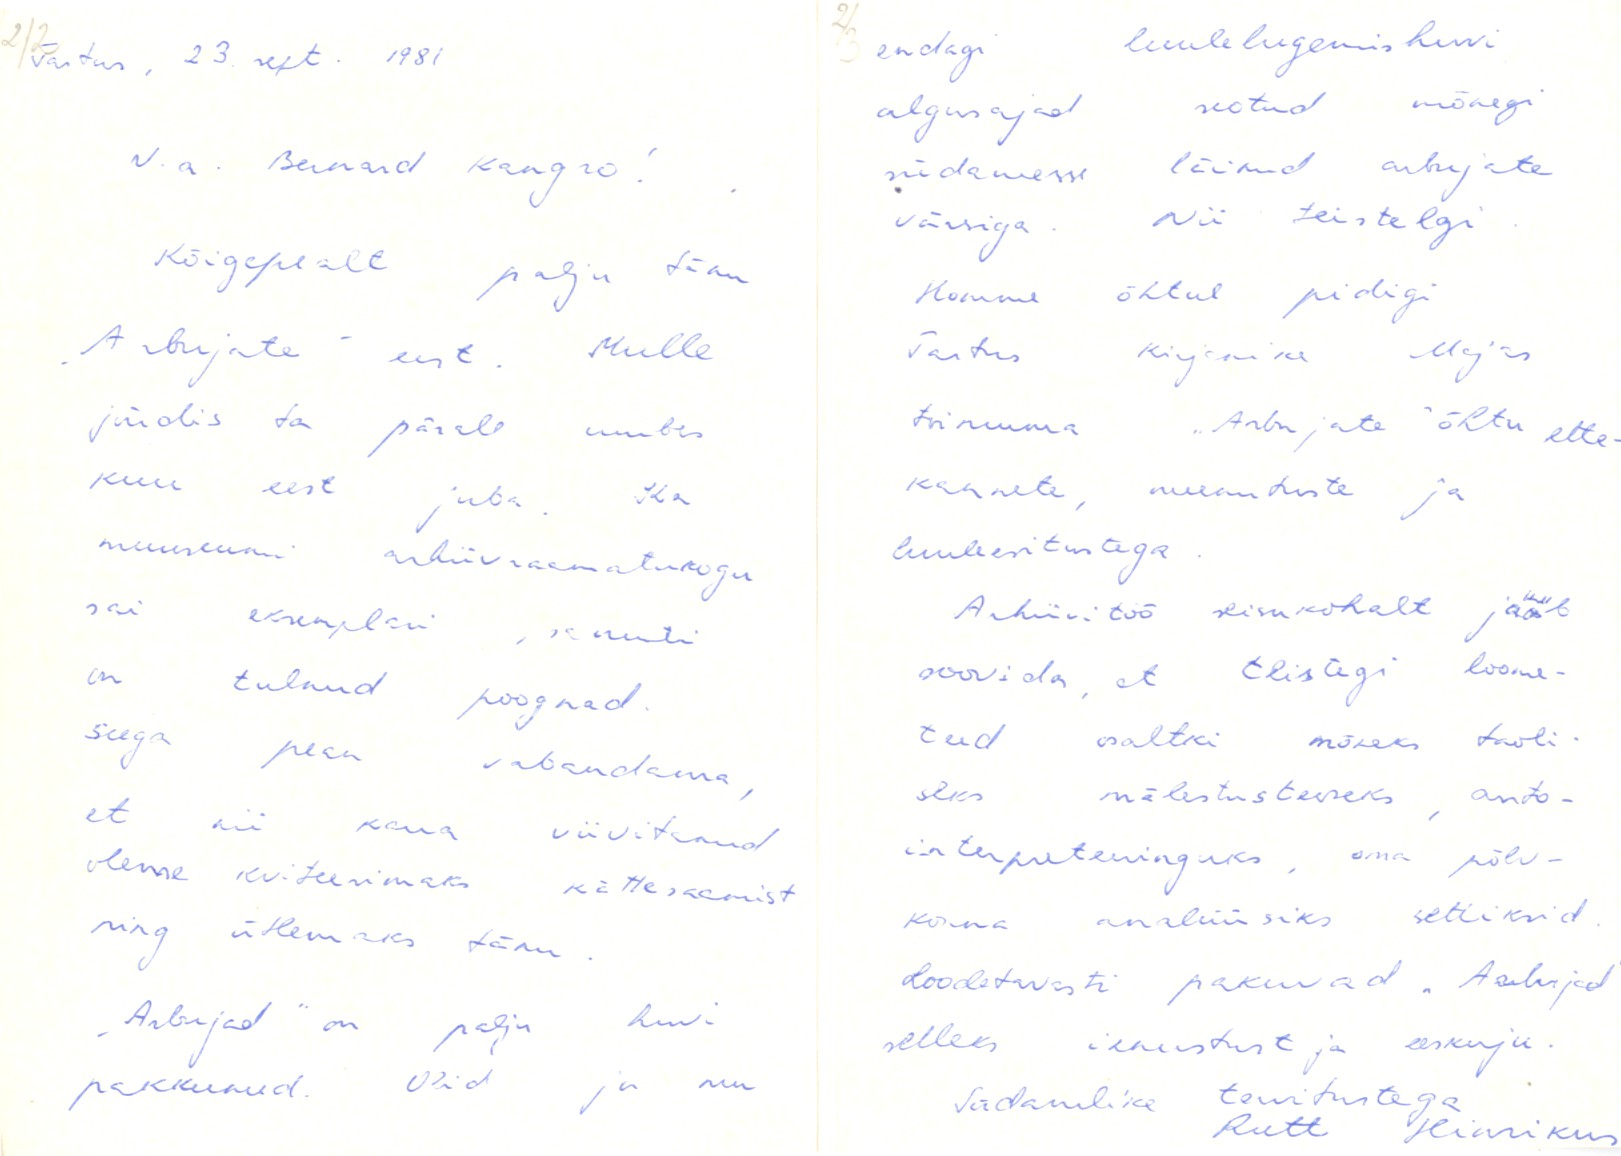 2/2
Tartus, 23. sept. 1981
V.a. Bernard Kangro!
Kõigepealt palju tänu
„Arbujate" eest. Mulle
jõudis ta pärale umbes
kuu eest juba. Ka
muuseumi arhiivraamatukogu
sai eksemplari, samuti
on tulnud poognad.
Seega pean vabandama,
et nii kaua viivitanud
oleme kviteerimaks kättesaamist
ning ütlemaks tänu.
„Arbujad" on palju huvi
pakkunud. Olid ju mu
2/3
endagi luulelugemishuvi
algusajad seotud mõnegi
südamesse läinud arbujate
värsiga. Nii teistelgi.
Homme õhtul pidigi
Tartus Kirjanike Majas
toimuma „Arbujate" õhtu ette-
kannete, meenutuste ja
luuleesitustega.
Arhiivitöö seisukohalt jääb
soovida, et teistegi loome-
teed osaltki mõneks taoli-
seks mälestusteoseks, auto-
interpreteeringuks, oma põlv-
konna analüüsiks settiksid.
Loodetavasti pakuvad „Arbujad"
selleks innustust ja eeskuju.
Südamlike tervitustega
Rutt Hinrikus